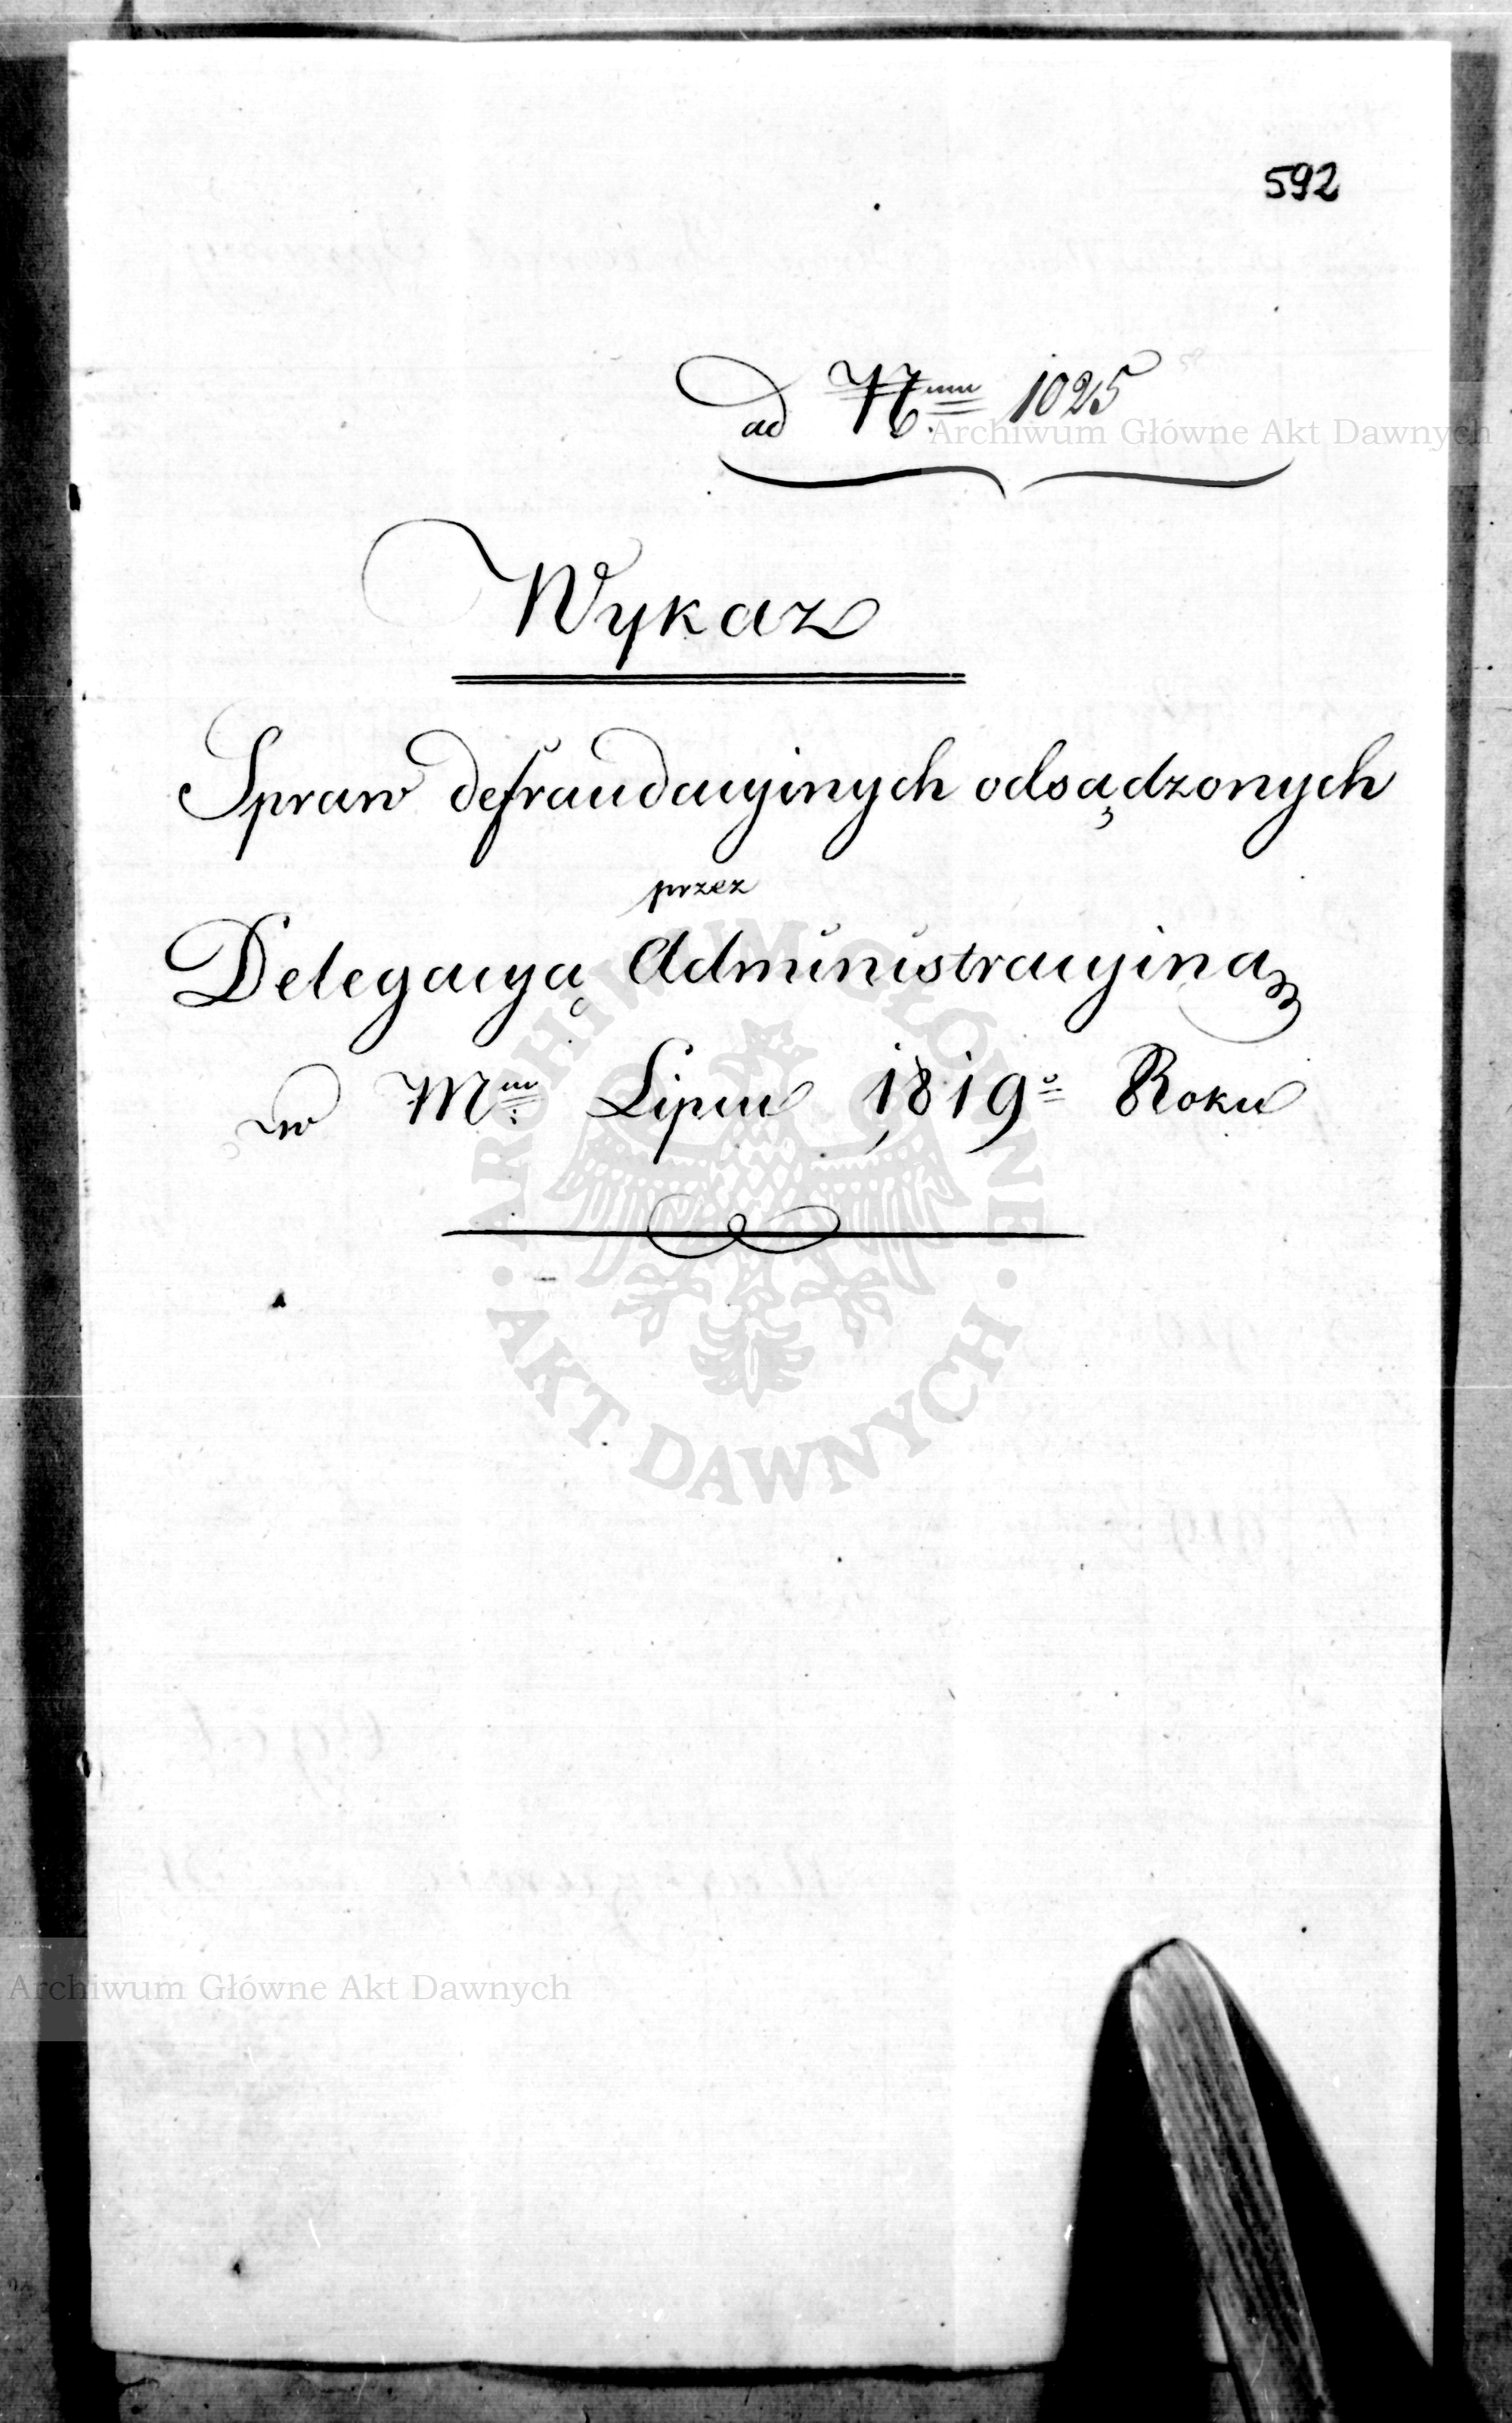 592
ad Nrum 1025
Archiwum Główne Akt Dawnych
Wykaz
Spraw defraudacyinych odsądzonych
przez
Delegacyą Administracyiną
w Mcu Lipcu 1819o Roku
ARCHIWUM GŁÓWNE
AKT DAWNYCH
Archiwum Główne Akt Dawnych